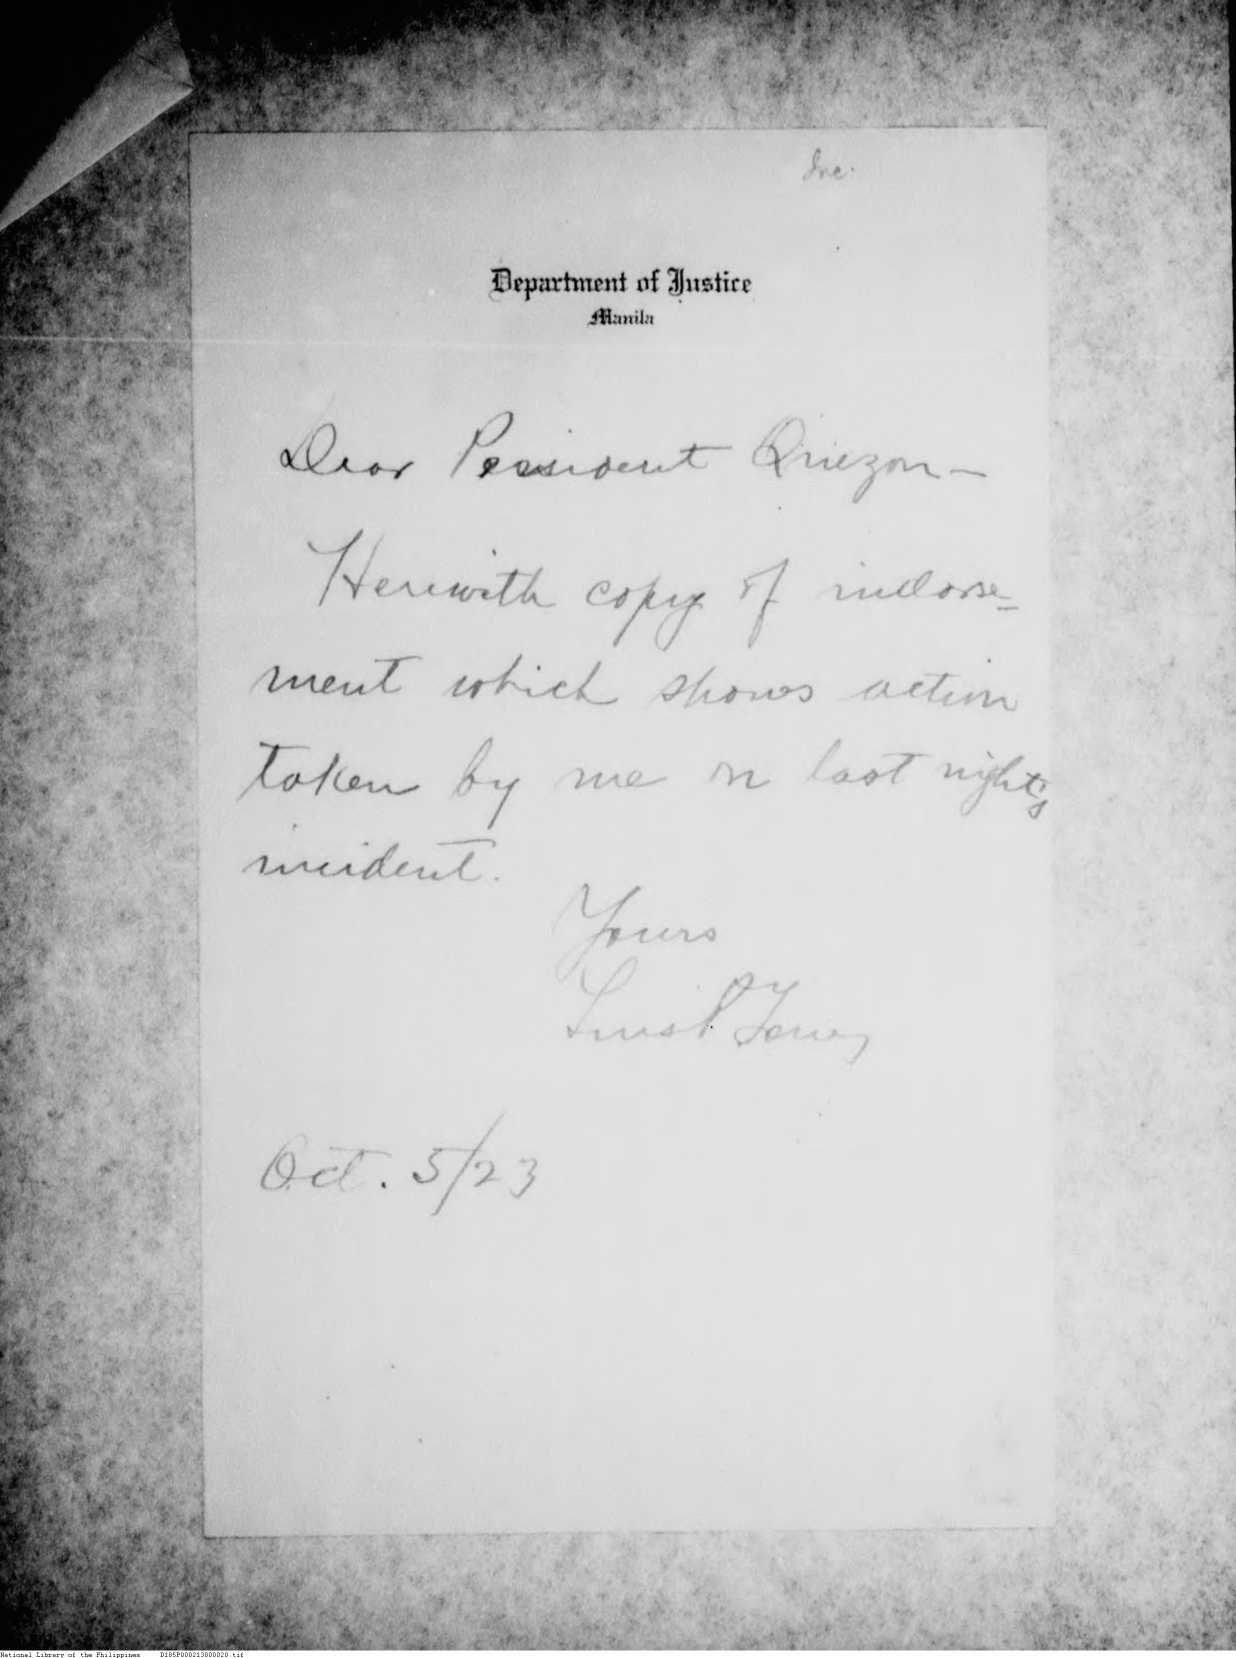 Inc.
Department of Justice
Manila
Dear President Quezon—
Herewith copy of indorse-
ment which shows action
taken by me on last night's
incident.
Yours
Luis P. Torres
Oct. 5/23
National Library of the Philippines D185P000213000020.tif